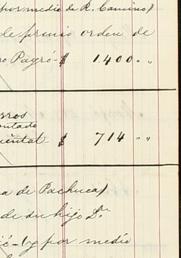 por medio de R. Camino)
de premio orden de
o Payró $ 1400 „ „
rros
ontado
iental $ 714 „ „
a de Pachuca)
de du hijo D.
por medio